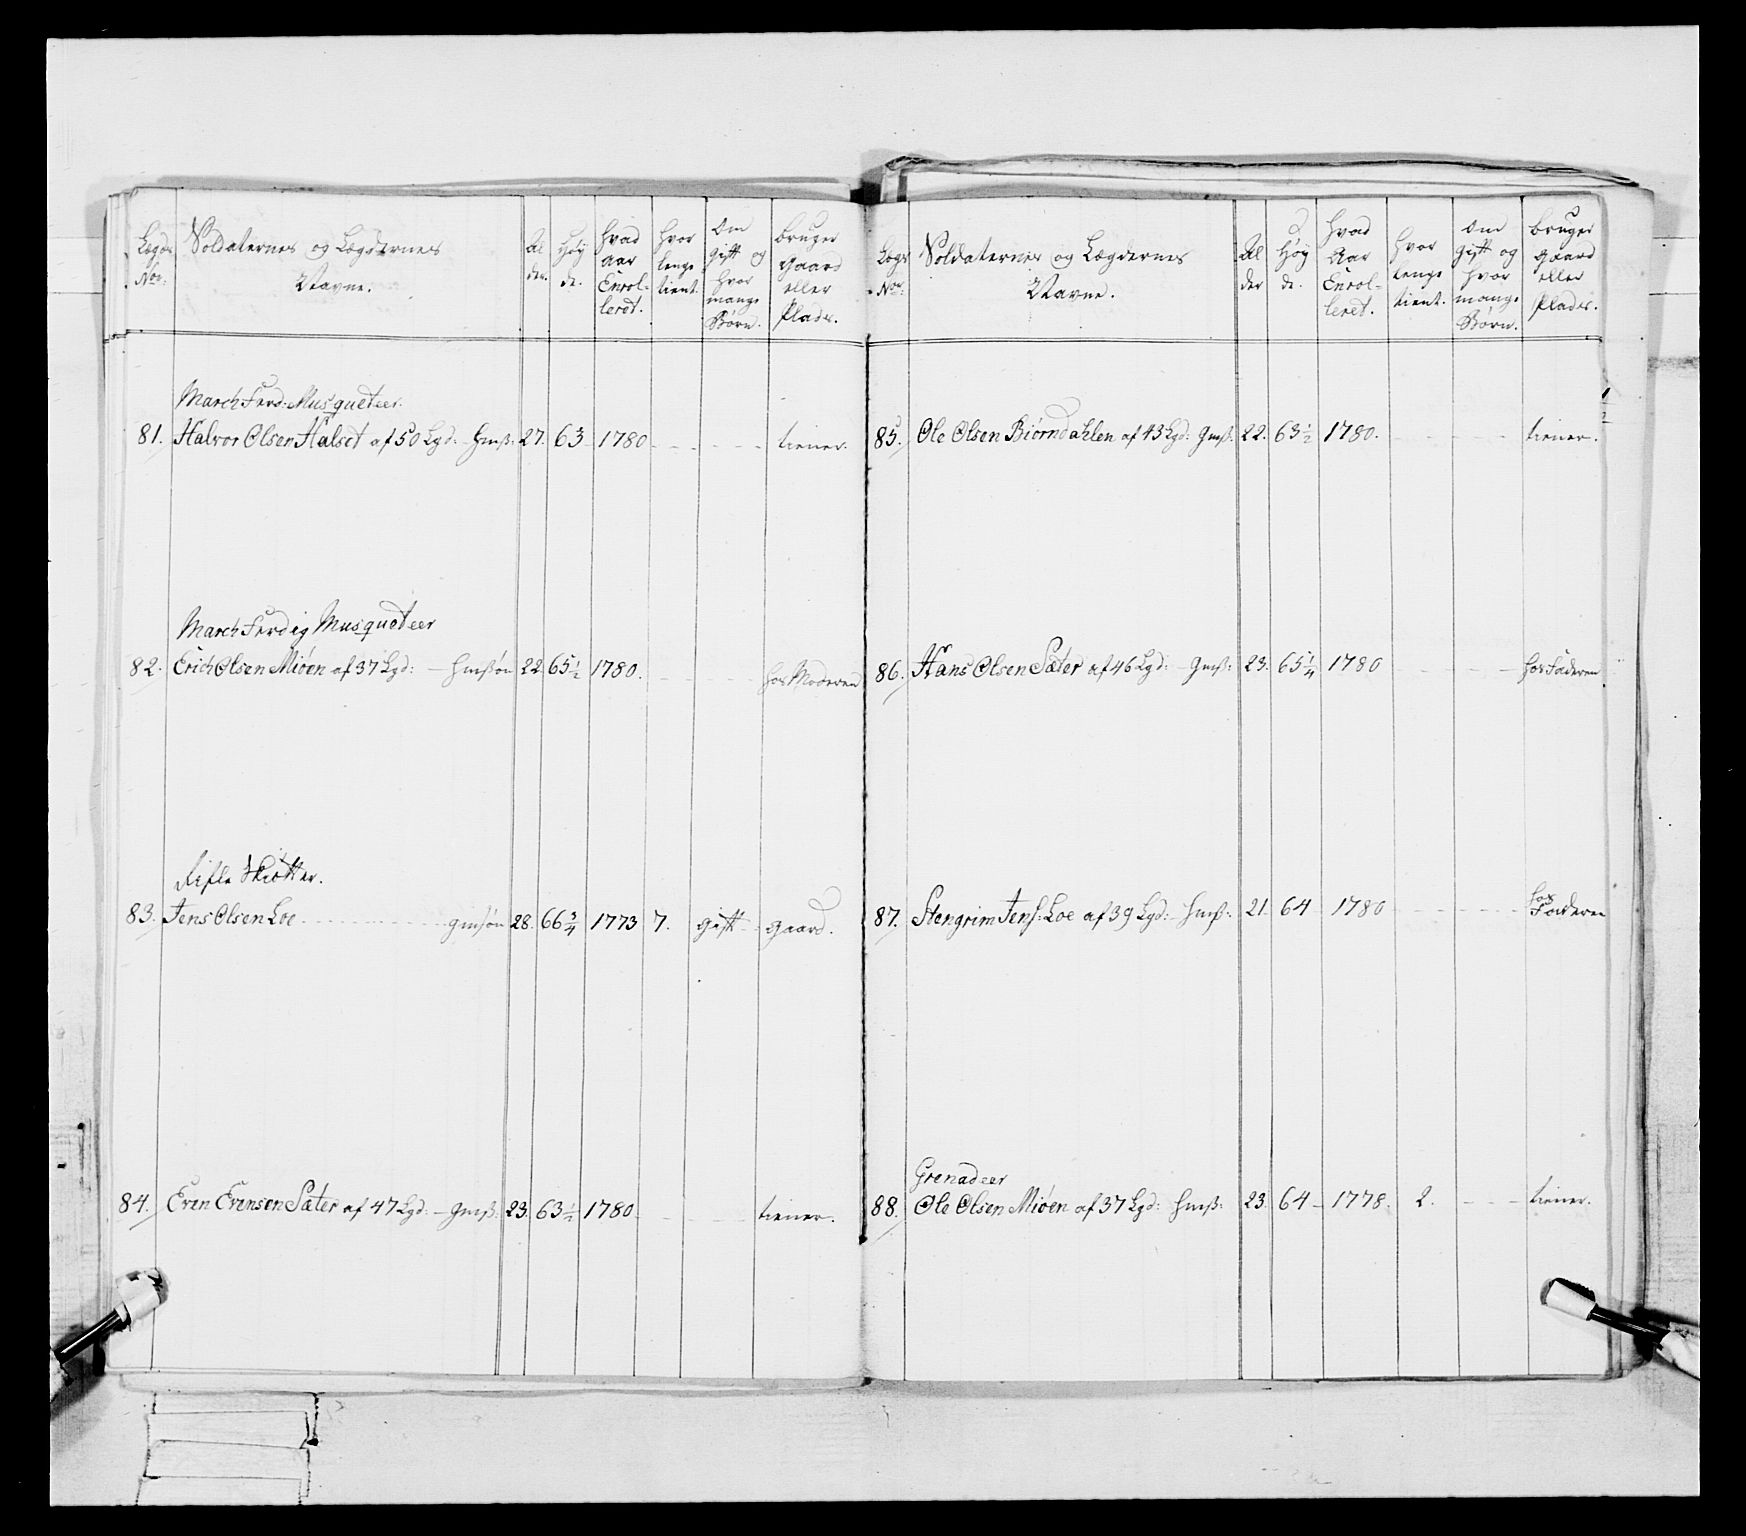 Lægds No: | Soldaternes og Lægdernes Navne. | Al der. | Høy de. | hvad aar Enrolleret. | hvor lenge tient. | Om gift og hvor mange Børn. | bruger gaard eller Plads.
March Ferd: Musqueteer.
81. Halvor Olsen Halset af 50 Lgd: hmß: 27. 63 1780 tiener.
March Ferdig Musqueteer
82. Erich Olsen Mióen af 37 Lgd: – hmßøn 22. 65 1/2 1780. hos Moderen
Rifle Skiøtter.
83. Jens Olsen Loe gmsøn 28. 66 3/4 1773 7. gift gaard.
84. Even Evensen Sæter af 47 Lgd: – gmß: 23. 63 1/2 1780. tiener.
Lægs No: | Soldaternes og Lægdernes Navne. | Al der | Høy de. | hvad Aar Enrolleret. | hvor lenge tient. | Om gift og hvor mange Børn. | bruger gaard eller Plads.
85. Ole Olsen Biørndahlen af 43 Lgd: gmß: 22. 63 1/2 1780. tiener.
86. Hans Olsen Sæter af 46 Lgd: – gmß: 23. 65 1/4 1780 hos Faderen
87. Stengrim Jens: Loe af 39 Lgd: – hmß: 21. 64 1780 hos Faderen
Grenadeer
88. Ole Olsen Mióen af 37 Lgd: hmß: 23. 64 – 1778. 2. tiener.